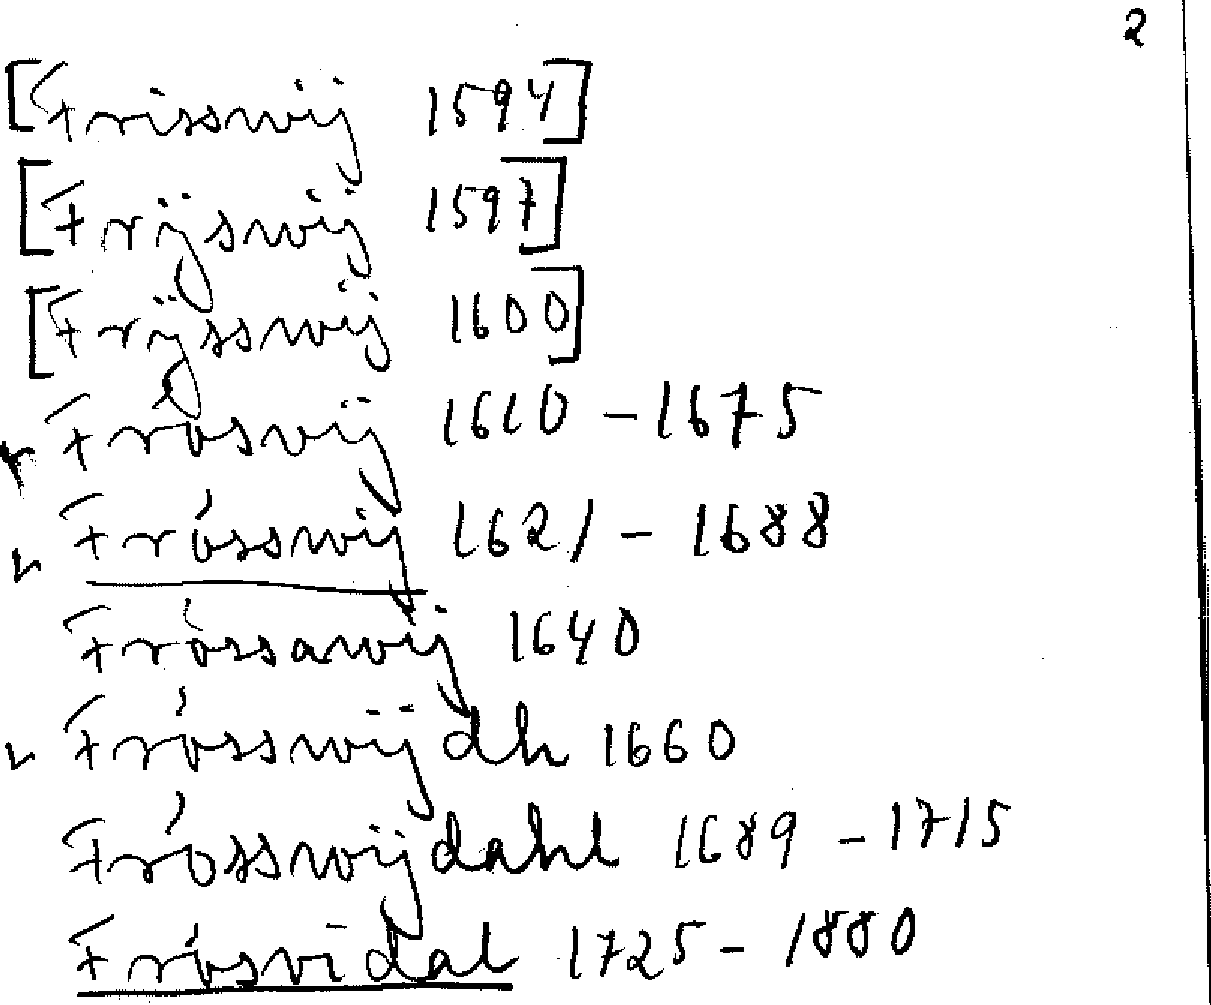 2
[Frisswij 1594]
[Frijswij 1597]
[Frÿsswij 1600]
Frósvij 1610 - 1675
Frósswij 1621 - 1688
Fróssawij 1640
Frósswijdh 1660
Frósswijdahl 1689 - 1715
Frósvidal 1725 - 1880